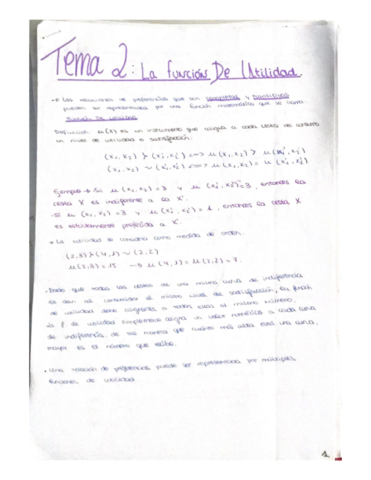 Tema 2: La Función De Utilidad.
→ Las relaciones de preferencias que son completas y transitivas
pueden ser representadas por una función matemática que se llama
función de utilidad
Definición: μ(x) es un instrumento que asigna a cada cesta de consumo
un nivel de utilidad o satisfacción:
(x₁, x₂) } (x₁', x₂') <=> μ(x₁, x₂) > μ(x₁', x₂')
(x₁, x₂) ~ (x₁', x₂') <=> μ(x₁, x₂) = μ(x₁', x₂')
Ejemplo → Si μ(x₁, x₂) = 3 y μ(x₁', x₂') = 3, entonces la
cesta X es indiferente a la X'.
-Si μ(x₁, x₂) = 3 y μ(x₁', x₂') = 1, entonces la cesta X
es estrictamente preferida a X'.
→ La utilidad se considera como medida de orden.
(2,3) } (4,1) ~ (2,2)
μ(2,3) = 15 → μ(4,1) = μ(2,2) = 7.
· Dado que todas las cestas de una misma curva de indiferencia
le dan al consumidor el mismo nivel de satisfacción, la función
de utilidad debe asignarle a todas ellas el mismo número.
la f de utilidad simplemente asigna un valor numérico a cada curva
de indiferencia, de tal manera que cuanto más alta esté una curva,
mayor es el número que recibe.
· Una relación de preferencias puede ser representada por múltiples
funciones de utilidad
1.